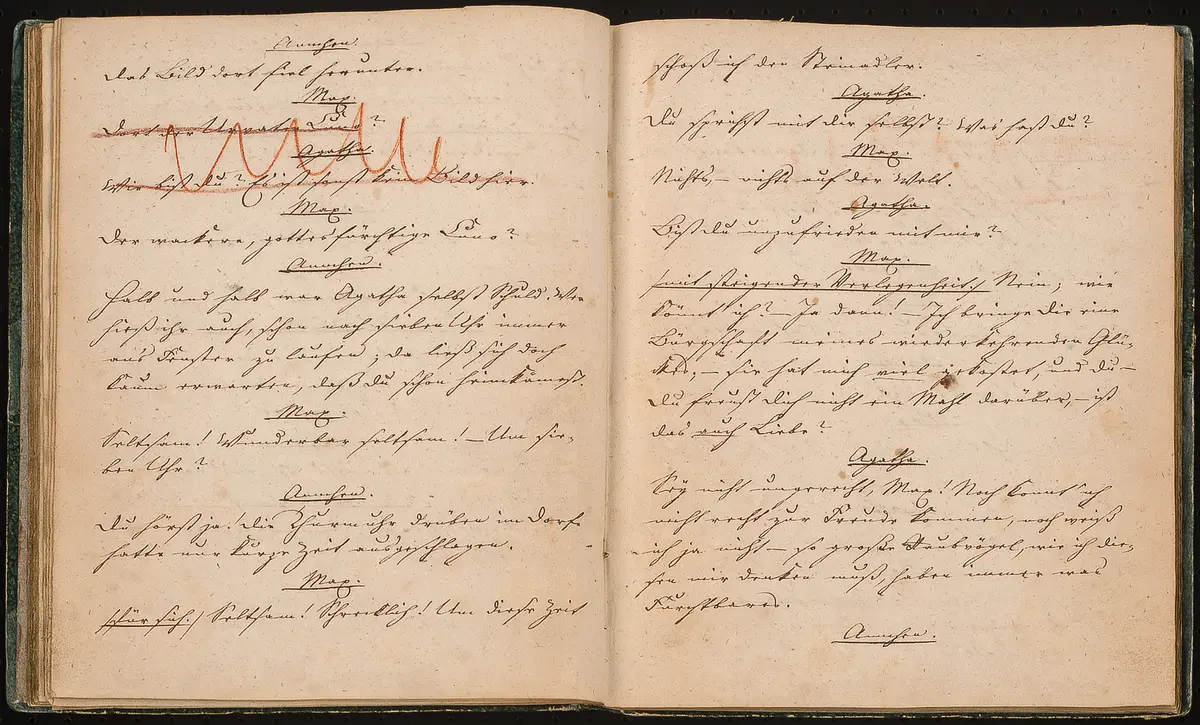 Annchen.
Das Bild dort fiel herunter.
Max.
Dort der Urvater Cuno?
Agatha.
Wie bist du? Es ist sonst kein Bild hier.
Max.
Der wackere, gottesfürchtige Cuno?
Annchen.
Halb und halb war Agatha selbst Schuld. Wer
hieß ihr auch, schon nach sieben Uhr immer
ans Fenster zu laufen; da ließ sich doch
kaum erwarten, daß du schon heimkämest.
Max.
Seltsam! Wunderbar seltsam! – Um sie-
ben Uhr?
Annchen.
Du hörst ja! Die Thurmuhr drüben im Dorfe
hatte nur kurze Zeit ausgeschlagen.
Max.
/:für sich:/ Seltsam! Schrecklich! Um diese Zeit
schoß ich den Steinadler.
Agatha.
Du sprichst mit dir selbst? Was hast du?
Max.
Nichts, – nichts auf der Welt.
Agatha.
Bist du unzufrieden mit mir?
Max.
/:mit steigender Verlegenheit:/ Nein; wie
könnt' ich? – Ja dann! – Ich bringe dir eine
Bürgschaft meines wiederkehrenden Glü-
ckes, – sie hat mich viel gekostet, und du –
du freust dich nicht ein Mahl darüber, – ist
das auch Liebe?
Agatha.
Sey nicht ungerecht, Max! Noch konnt' ich
nicht recht zur Freude kommen, noch weiß
ich ja nicht – so große Raubvögel, wie ich die-
sen mir denken muß, haben immer was
Furchtbares.
Annchen.